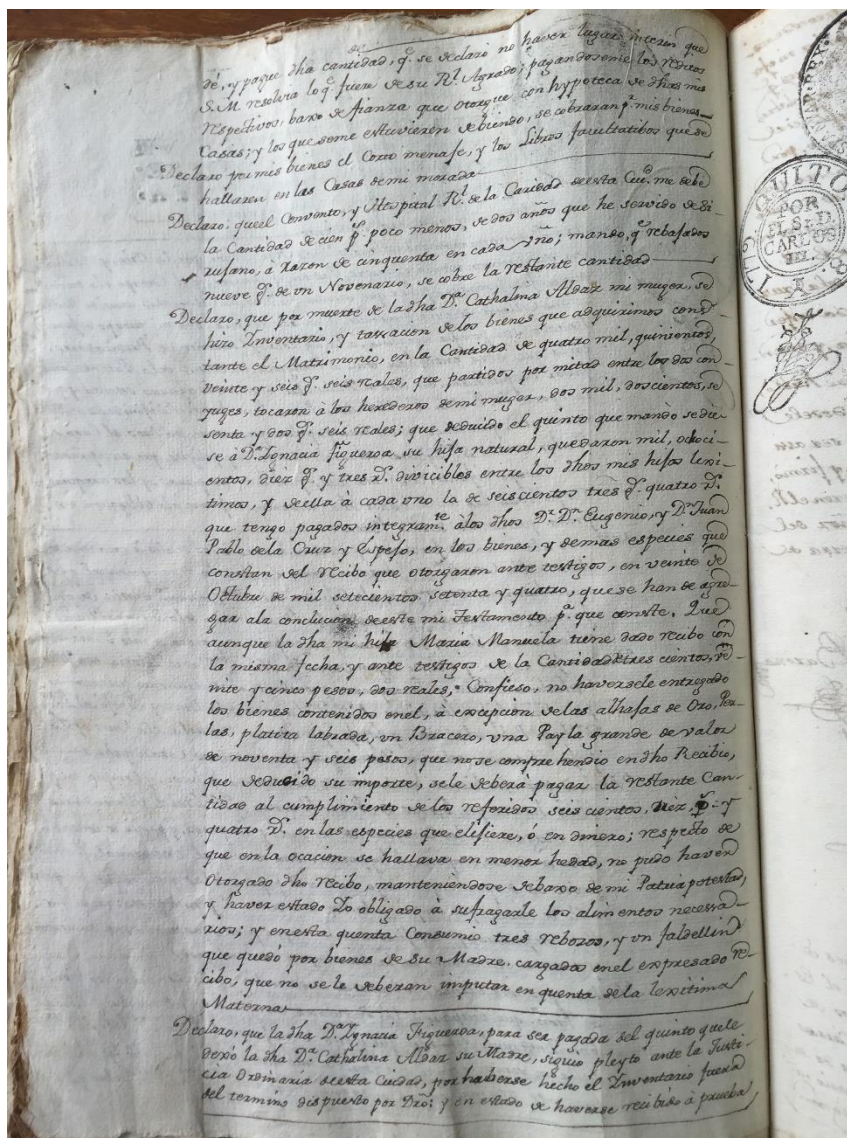 de
dé, y pague dha cantidad, q.e se declaró no haver lugar interin que
S. M. resolvia lo q.e fuere de su R.l Agrado; pagandoseme los reditos
respectivos, baxo de fianza que otorgue con hypoteca de dhas mis
Casas; y los que se me estuvieren debiendo, se cobraran p.r mis bienes
Declaro por mis bienes el Corto menaje, y los Libros facultatibos que se
hallaren en las Casas de mi morada
Declaro, que el Convento, y Hospital R.l de la Caridad de esta Ciu.d me debe
la Cantidad de cien p.s poco menos, de dos años que he servido de Si-
rujano, à razon de cinquenta en cada año; mando, q.e rebajados
nueve p.s de un Novenario, se cobre la restante cantidad
Declaro, que por muerte de la dha D.a Cathalina Aldaz mi muger, se
hizo Inventario, y tassacion de los bienes que adquirimos const-
tante el Matrimonio, en la Cantidad de quatro mil, quinientos,
veinte y seis p.s seis reales, que partidos por mitad entre los dos con-
yuges, tocaron à los herederos de mi muger, dos mil, doscientos, se
senta y dos p.s seis reales; que deducido el quinto que mandó se die-
se à D.a Ignacia Figueroa su hija natural, quedaron mil, ochoci-
entos, diez p.s y tres r.s divicibles entre los dhos mis hijos lexi-
timos, y de ella à cada uno la de seiscientos tres p.s quatro r.s
que tengo pagados integram.te à los dhos D.r D.n Eugenio, y D.n Juan
Pablo de la Cruz y Espejo, en los bienes, y demas especies que
constan del recibo que otorgaron ante testigos, en veinte de
Octubre de mil setecientos setenta y quatro, que se han de agre-
gar a la conclucion de este mi Testamento p.a que conste. Que
aunque la dha mi hija Maria Manuela tiene dado recibo con
la misma fecha, y ante testigos de la Cantidad de tres cientos, ve-
inte y cinco pesos, dos reales, Confieso, no haversele entregado
los bienes contenidos en el, à excepcion de las alhajas de Oro, Per-
las, platita labrada, un Bracero, una Payla grande de valor
de noventa y seis pesos, que no se comprehendio en dho Recibio,
que deducido su importe, se le deberà pagar la restante Can-
tidad al cumplimiento de los referidos seis cientos, diez p.s y
quatro r.s en las especies que elijiere, ó en dinero; respecto de
que en la ocacion se hallava en menor hedad, no pudo haver
otorgado dho recibo, manteniendose debaxo de mi Patria potestad,
y haver estado Yo obligado à sufragarle los alimentos necessa-
rios; y en esta quenta Consumio tres rebozos, y un faldellin
que quedó por bienes de su Madre, cargados en el expresado re-
cibo, que no se le deberan imputar en quenta de la lexitima
Materna
Declaro, que la dha D.a Ignacia Figueroa, para ser pagada del quinto que le
dexó la dha D.a Cathalina Aldaz su Madre, siguio pleyto ante la Justi-
cia Ordinaria de esta Ciudad, por haberse hecho el Inventario fuera
del termino dispuesto por Dro: y en estado de haverse recibido à prueba
QUITO
1779
POR
EL S.r D.
CARLOS
III.